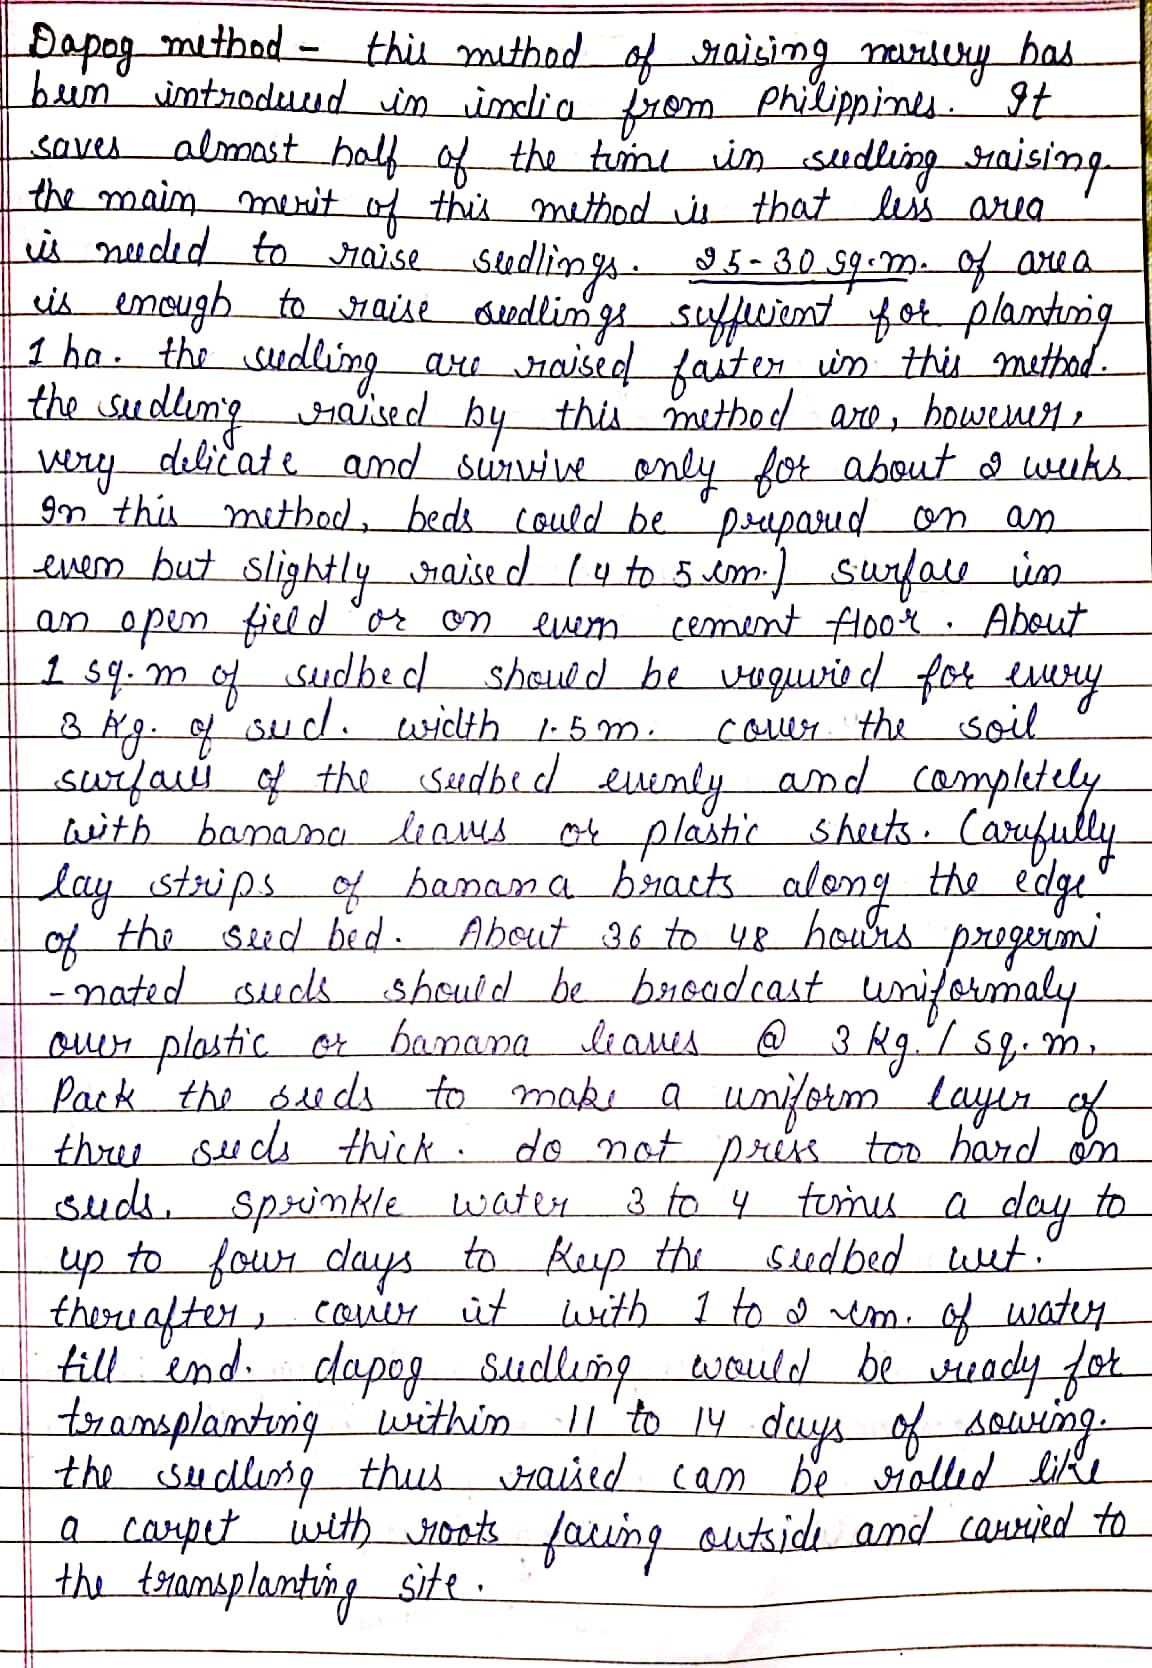 Dapog method - this method of raising nursery has
been introduced in india from Philippines. It
saves almost half of the time in seedling raising.
the main merit of this method is that less area
is needed to raise seedlings. 25-30 sq.m. of area
is enough to raise seedlings sufficient for planting
1 ha. the seedling are raised faster in this method.
the seedling raised by this method are, however,
very delicate and survive only for about 2 weeks
In this method, beds could be prepared on an
even but slightly raised (4 to 5 cm.) surface in
an open field or on even cement floor. About
1 sq.m of seedbed should be required for every
3 kg. of seed. width 1.5 m. cover the soil
surface of the seedbed evenly and completely
with banana leaves or plastic sheets. Carefully
lay strips of banana bracts along the edge
of the seed bed. About 36 to 48 hours pregermi
-nated seeds should be broadcast uniformaly
over plastic or banana leaves @ 3 kg. / sq.m.
Pack the seeds to make a uniform layer of
three seeds thick. do not press too hard on
seeds. sprinkle water 3 to 4 times a day to
up to four days to keep the seedbed wet.
thereafter, cover it with 1 to 2 cm. of water
till end. dapog seedling would be ready for
transplanting within 11 to 14 days of sowing.
the seedling thus raised can be rolled like
a carpet with roots facing outside and carried to
the transplanting site.